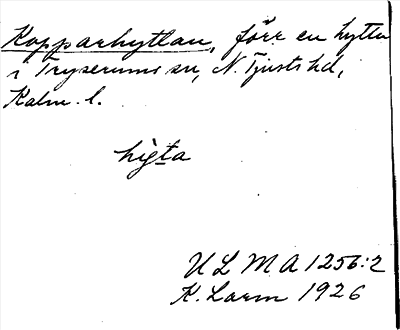 Kopparhyttan, förr en hytta
i Tryserums sn, N. Tjusts hd,
Kalm. l.
hy̆ta
U L M A 1256:2
K. Larm 1926